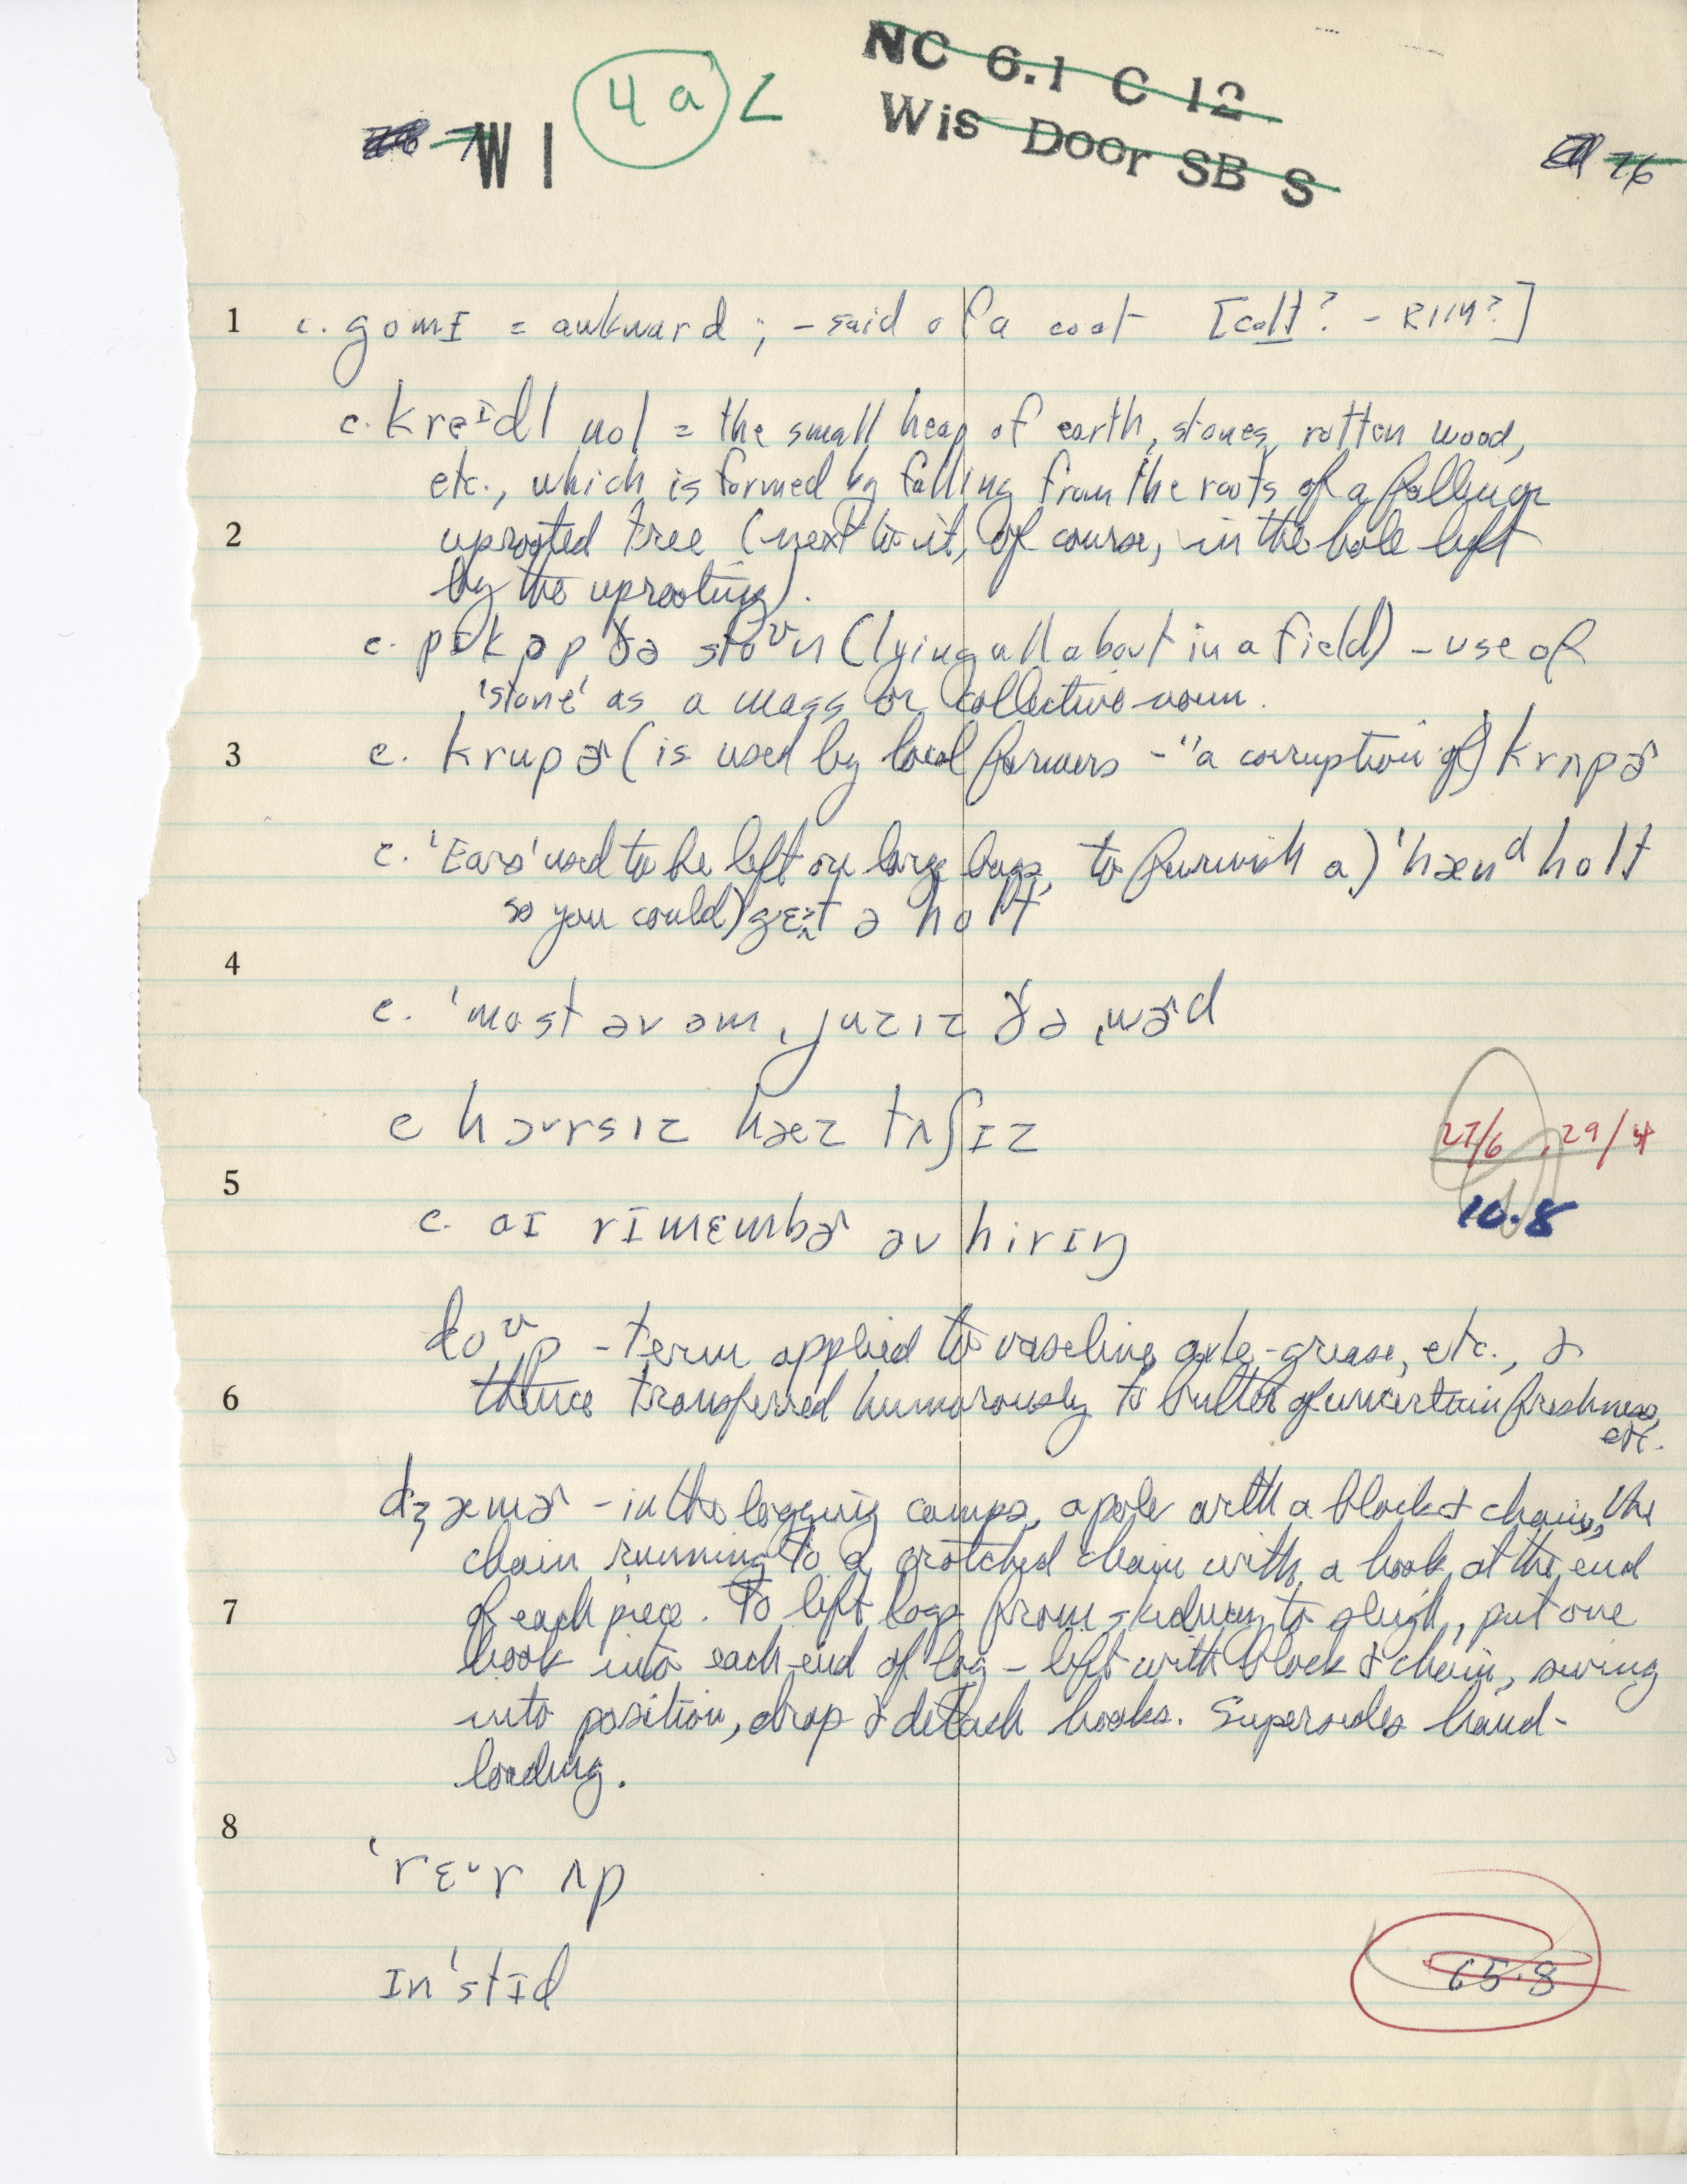 NC 6.1 C 12
4a L
Wis Door SB S
W 1
76
1 c. gomɪ = awkward ; – said of a coat [colt? – RIM?]
c. kreɪdl nol = the small heap of earth, stones, rotten wood,
etc., which is formed by falling from the roots of a fallen or
2 uprooted tree (next to it, of course, in the hole left
by the uprooting).
c. pɪk əp ðə stoʊn (lying all about in a field) – use of
'stone' as a mass or collective noun.
3 c. krupɚ (is used by local farmers – "a corruption of) krʌpɚ
c. 'Ears' used to be left on large bags, to furnish a) ˈhænᵈ holt
so you could) gɛt ə holt
4
c. ˈmost əv əm ˌjuzɪz ðə ˌwɚd
c hɔrsɪz hæz tʌʃɪz
27/6, 29/4
5
10.8
c. aɪ rɪmɛmbɚ əv hirɪŋ
doʊp – term applied to vaseline, axle-grease, etc., &
6 thence transferred humorously to butter of uncertain freshness,
etc.
dʒæmɚ – in the logging camps, a pole with a block & chain, the
chain running to a crotched chain with a hook at the end
7 of each piece. To lift logs from skidway to sleigh, put one
hook into each end of log – lift with block & chain, swing
into position, drop & detach hooks. Supersedes hand-
loading.
8
ˈrɛr ʌp
65.8
ɪnˈstɪd